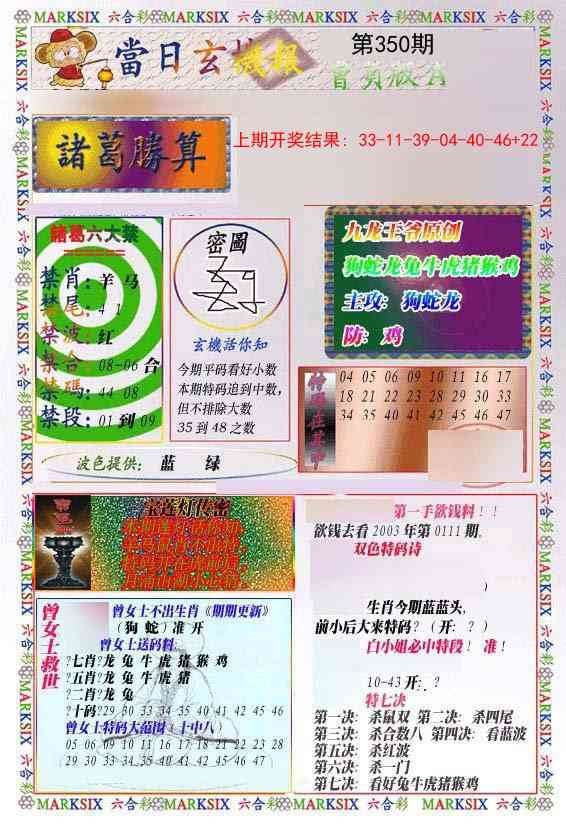 MARKSIX 六合彩 MARKSIX 六合彩 MARKSIX 六合彩 MARKSIX 六合彩 MARKSIX
當日玄機報
第350期
曾員版A
諸葛勝算
上期开奖结果: 33-11-39-04-40-46+22
諸葛六大禁
禁肖: 羊 马
禁尾: 4 1
禁波: 红
禁合: 08-06 合
禁碼: 44 08
禁段: 01 到 09
密圖
玄機活你知
今期平码看好小数
本期特码追到中数,
但不排除大数
35 到 48 之数
九龙王爷原创
狗蛇龙兔牛虎猪猴鸡
主攻: 狗蛇龙
防: 鸡
04 05 06 09 10 11 16 17
18 21 22 23 28 29 30 33
34 35 40 41 42 45 46 47
波色提供: 蓝 绿
宝莲灯传密
第一手欲钱料!!
欲钱去看 2003 年第 0111 期。
双色特码诗
)
生肖今期蓝蓝头,
前小后大来特码? (开: ? )
白小姐必中特段! 准!
10-43 开: ?
特七决
第一决: 杀鼠双 第二决: 杀四尾
第三决: 杀合数八 第四决: 看蓝波
第五决: 杀红波
第六决: 杀一门
第七决: 看好兔牛虎猪猴鸡
曾女士救世
曾女士不出生肖《期期更新》
(狗 蛇) 准 开
曾女士送码料:
?七肖?龙 兔 牛 虎 猪 猴 鸡
?五肖?龙 兔 牛 虎 猪
?二肖?龙 兔
?十码?29 30 33 34 35 40 41 42 45 46
曾女士特码大范围(十中八)
05 06 09 10 11 16 17 18 21 22 23 28
29 30 33 34 35 40 41 42 45 46 47
MARKSIX 六合彩 MARKSIX 六合彩 MARKSIX 六合彩 MARKSIX 六合彩 MARKSIX